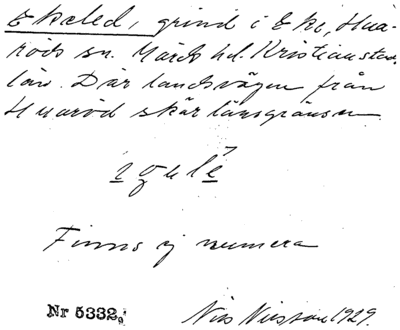 Ekeled, grind i Eke, Hua-
röds sn. Gärds hd. Kristianstads
län. Där landsvägen från
Huaröd skär länsgränsen
Finns ej numera
Nr 5332. Nils Nilsson 1929.